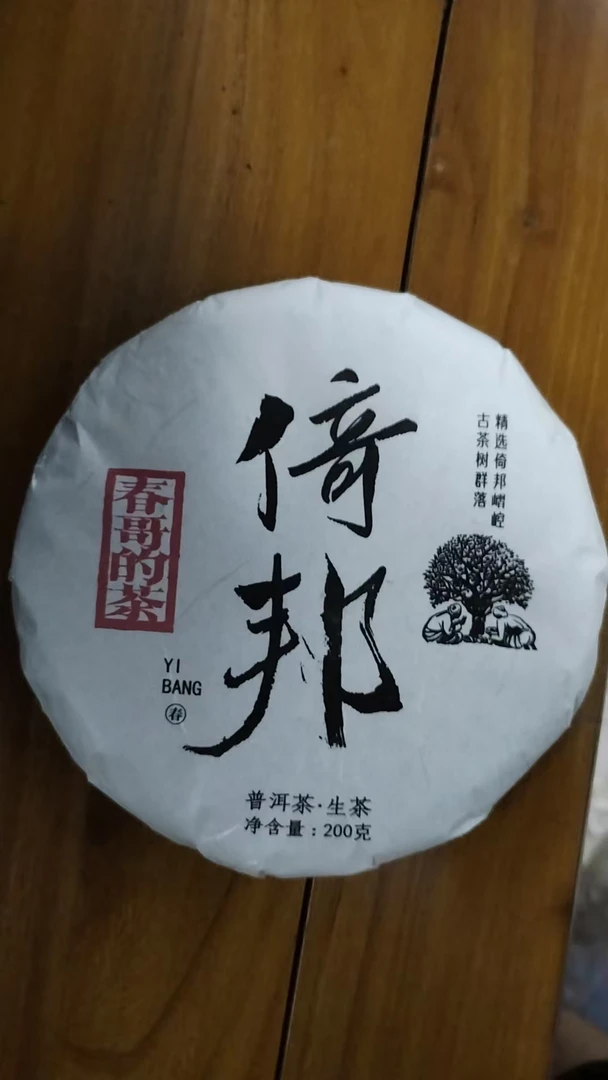 倚邦
精选倚邦嶆崆
古茶树群落
春哥的茶
YI
BANG
春
普洱茶·生茶
净含量：200克